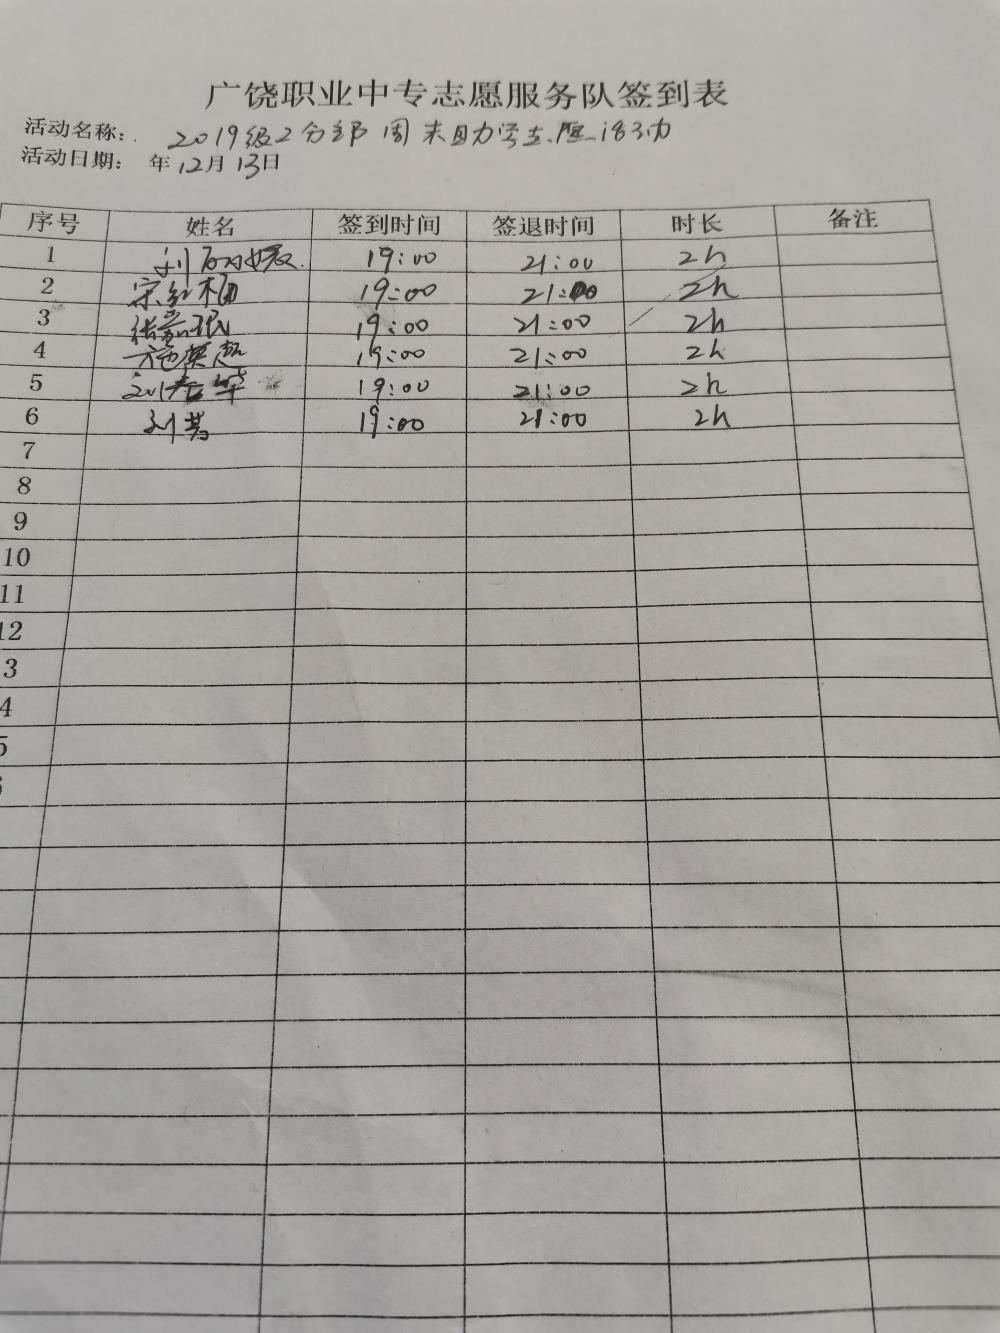 广饶职业中专志愿服务队签到表
活动名称：2019级2分部周末自助学志愿活动
活动日期： 年12月13日
序号 姓名 签到时间 签退时间 时长 备注
1 19:00 21:00 2h
2 宋红梅 19:00 21:00 2h
3 19:00 21:00 2h
4 19:00 21:00 2h
5 刘春华 19:00 21:00 2h
6 19:00 21:00 2h
7
8
9
10
11
12
3
4
5